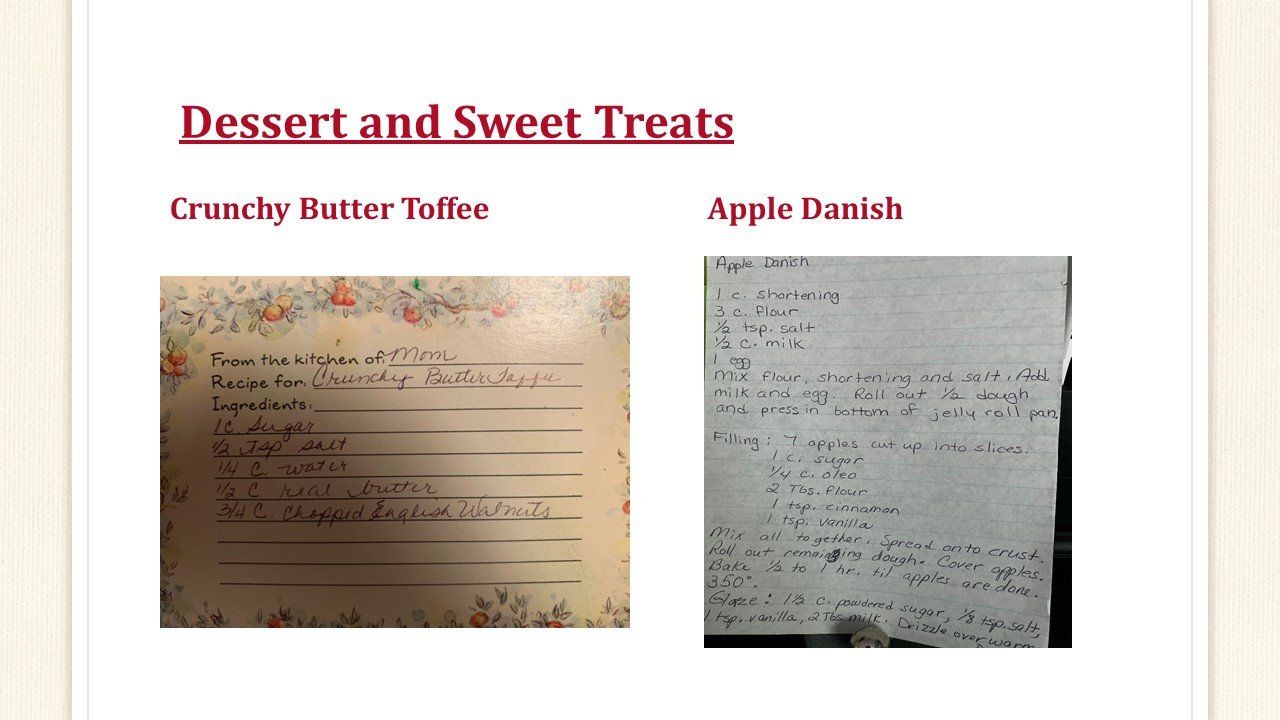 Dessert and Sweet Treats
Crunchy Butter Toffee
From the kitchen of: Mom
Recipe for: Crunchy Butter Taffee
Ingredients:
1 c. Sugar
1/2 tsp salt
1/4 C. water
1/2 C real butter
3/4 C. Chopped English Walnuts
Apple Danish
Apple Danish
1 c. shortening
3 c. flour
1/2 tsp. salt
1/2 c. milk
1 egg
Mix flour, shortening and salt. Add
milk and egg. Roll out 1/2 dough
and press in bottom of jelly roll pan.
Filling: 7 apples cut up into slices.
1 c. sugar
1/4 c. oleo
2 Tbs. flour
1 tsp. cinnamon
1 tsp. vanilla
Mix all together. Spread onto crust.
Roll out remaining dough. Cover apples.
Bake 1/2 to 1 hr. til apples are done.
350°.
Glaze: 1 1/2 c. powdered sugar, 1/8 tsp. salt,
1 tsp. vanilla, 2 Tbs milk. Drizzle over warm